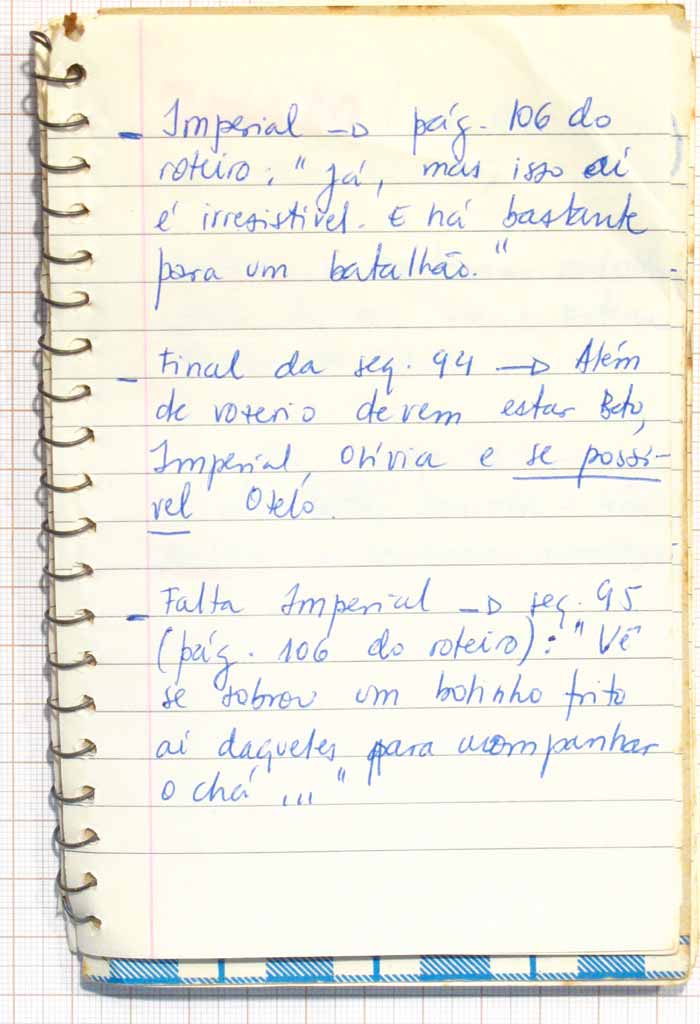 - Imperial → pág. 106 do
roteiro: "Já, mas isso aí
é irresistível. E há bastante
para um batalhão."
- Final da seq. 94 → Além
de vozerio devem estar Beto,
Imperial, Olívia e se possí-
vel Otelo.
- Falta Imperial → seq. 95
(pág. 106 do roteiro): "Vê
se sobrou um bolinho frito
aí daqueles para acompanhar
o chá..."